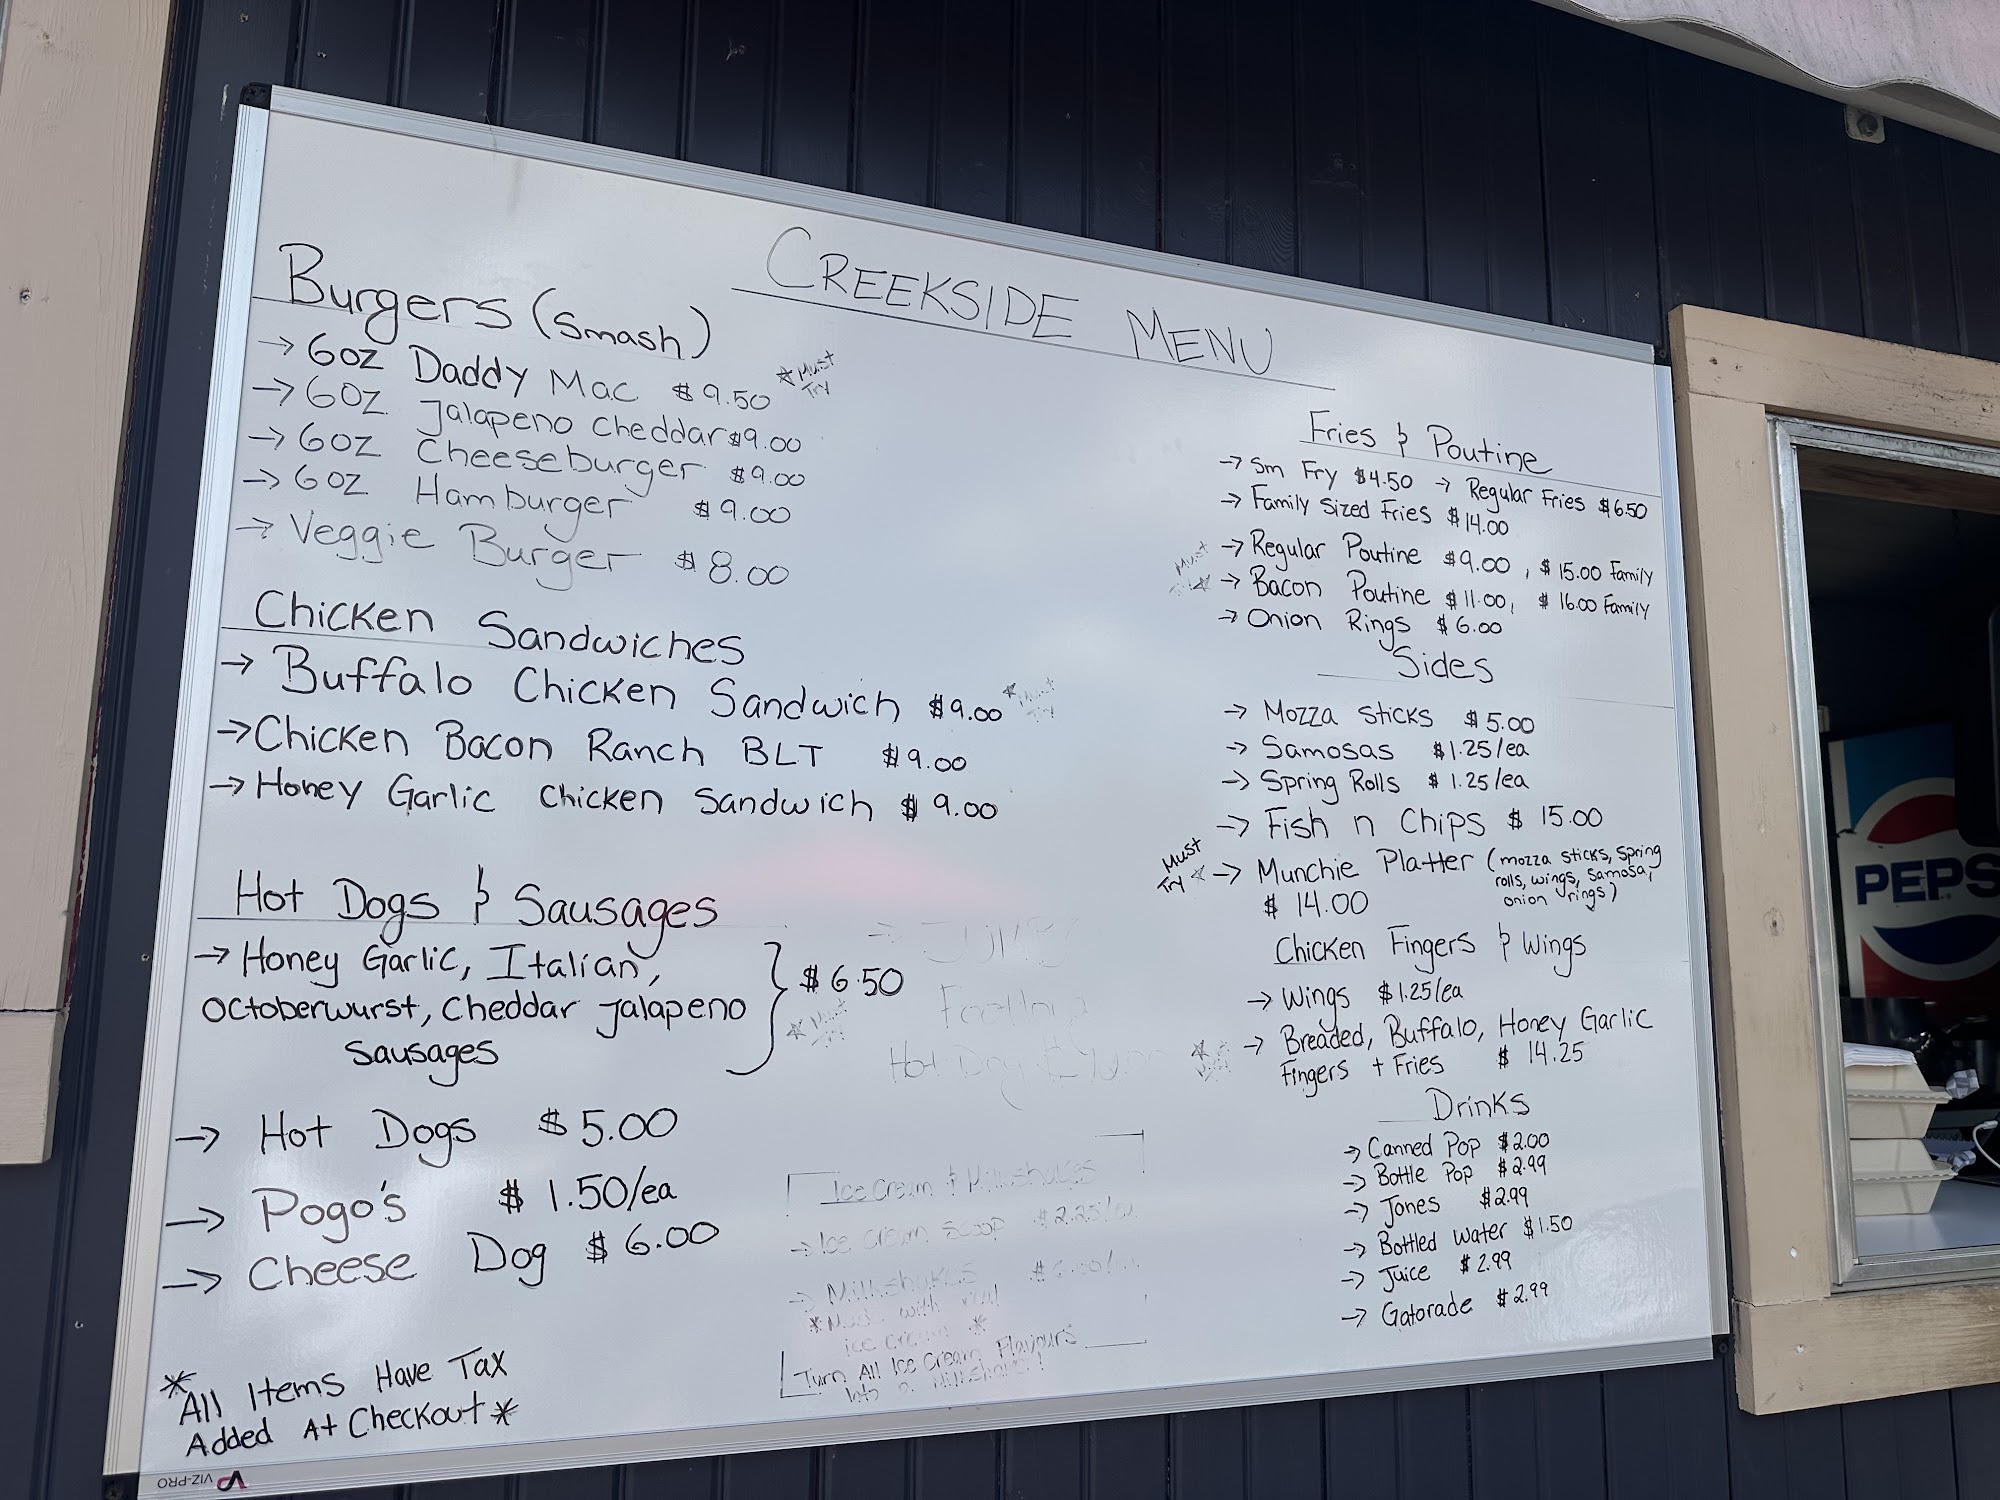 CREEKSIDE MENU
Burgers (Smash)
→ 6oz Daddy Mac $9.50 ☆ Must Try
→ 6oz Jalapeno Cheddar $9.00
→ 6oz Cheeseburger $9.00
→ 6oz Hamburger $9.00
→ Veggie Burger $8.00
Chicken Sandwiches
→ Buffalo Chicken Sandwich $9.00 ☆ Must Try
→ Chicken Bacon Ranch BLT $9.00
→ Honey Garlic Chicken Sandwich $9.00
Hot Dogs & Sausages
→ Honey Garlic, Italian,
Octoberwurst, Cheddar Jalapeno
Sausages
} $6.50
☆ Must
→ Hot Dogs $5.00
→ Pogo's $1.50/ea
→ Cheese Dog $6.00
*All Items Have Tax
Added At Checkout*
Footlong
Hot Dog
Ice Cream & Milkshakes
→ Ice Cream Scoop $2.25/ea
→ Milkshakes
*Made with real
ice cream *
Turn All Ice Cream Flavours
Into a Milkshake!
Fries & Poutine
→ Sm Fry $4.50 → Regular Fries $6.50
→ Family Sized Fries $14.00
→ Regular Poutine $9.00, $15.00 Family
Must
☆ → Bacon Poutine $11.00, $16.00 Family
→ Onion Rings $6.00
Sides
→ Mozza Sticks $5.00
→ Samosas $1.25/ea
→ Spring Rolls $1.25/ea
→ Fish n Chips $15.00
Must
Try ☆ → Munchie Platter (mozza sticks, spring
rolls, wings, samosa,
onion rings)
$14.00
Chicken Fingers & Wings
→ Wings $1.25/ea
☆ → Breaded, Buffalo, Honey Garlic
Fingers + Fries $14.25
Drinks
→ Canned Pop $2.00
→ Bottle Pop $2.99
→ Jones $2.99
→ Bottled Water $1.50
→ Juice $2.99
→ Gatorade $2.99
VIZ-PRO
PEPS